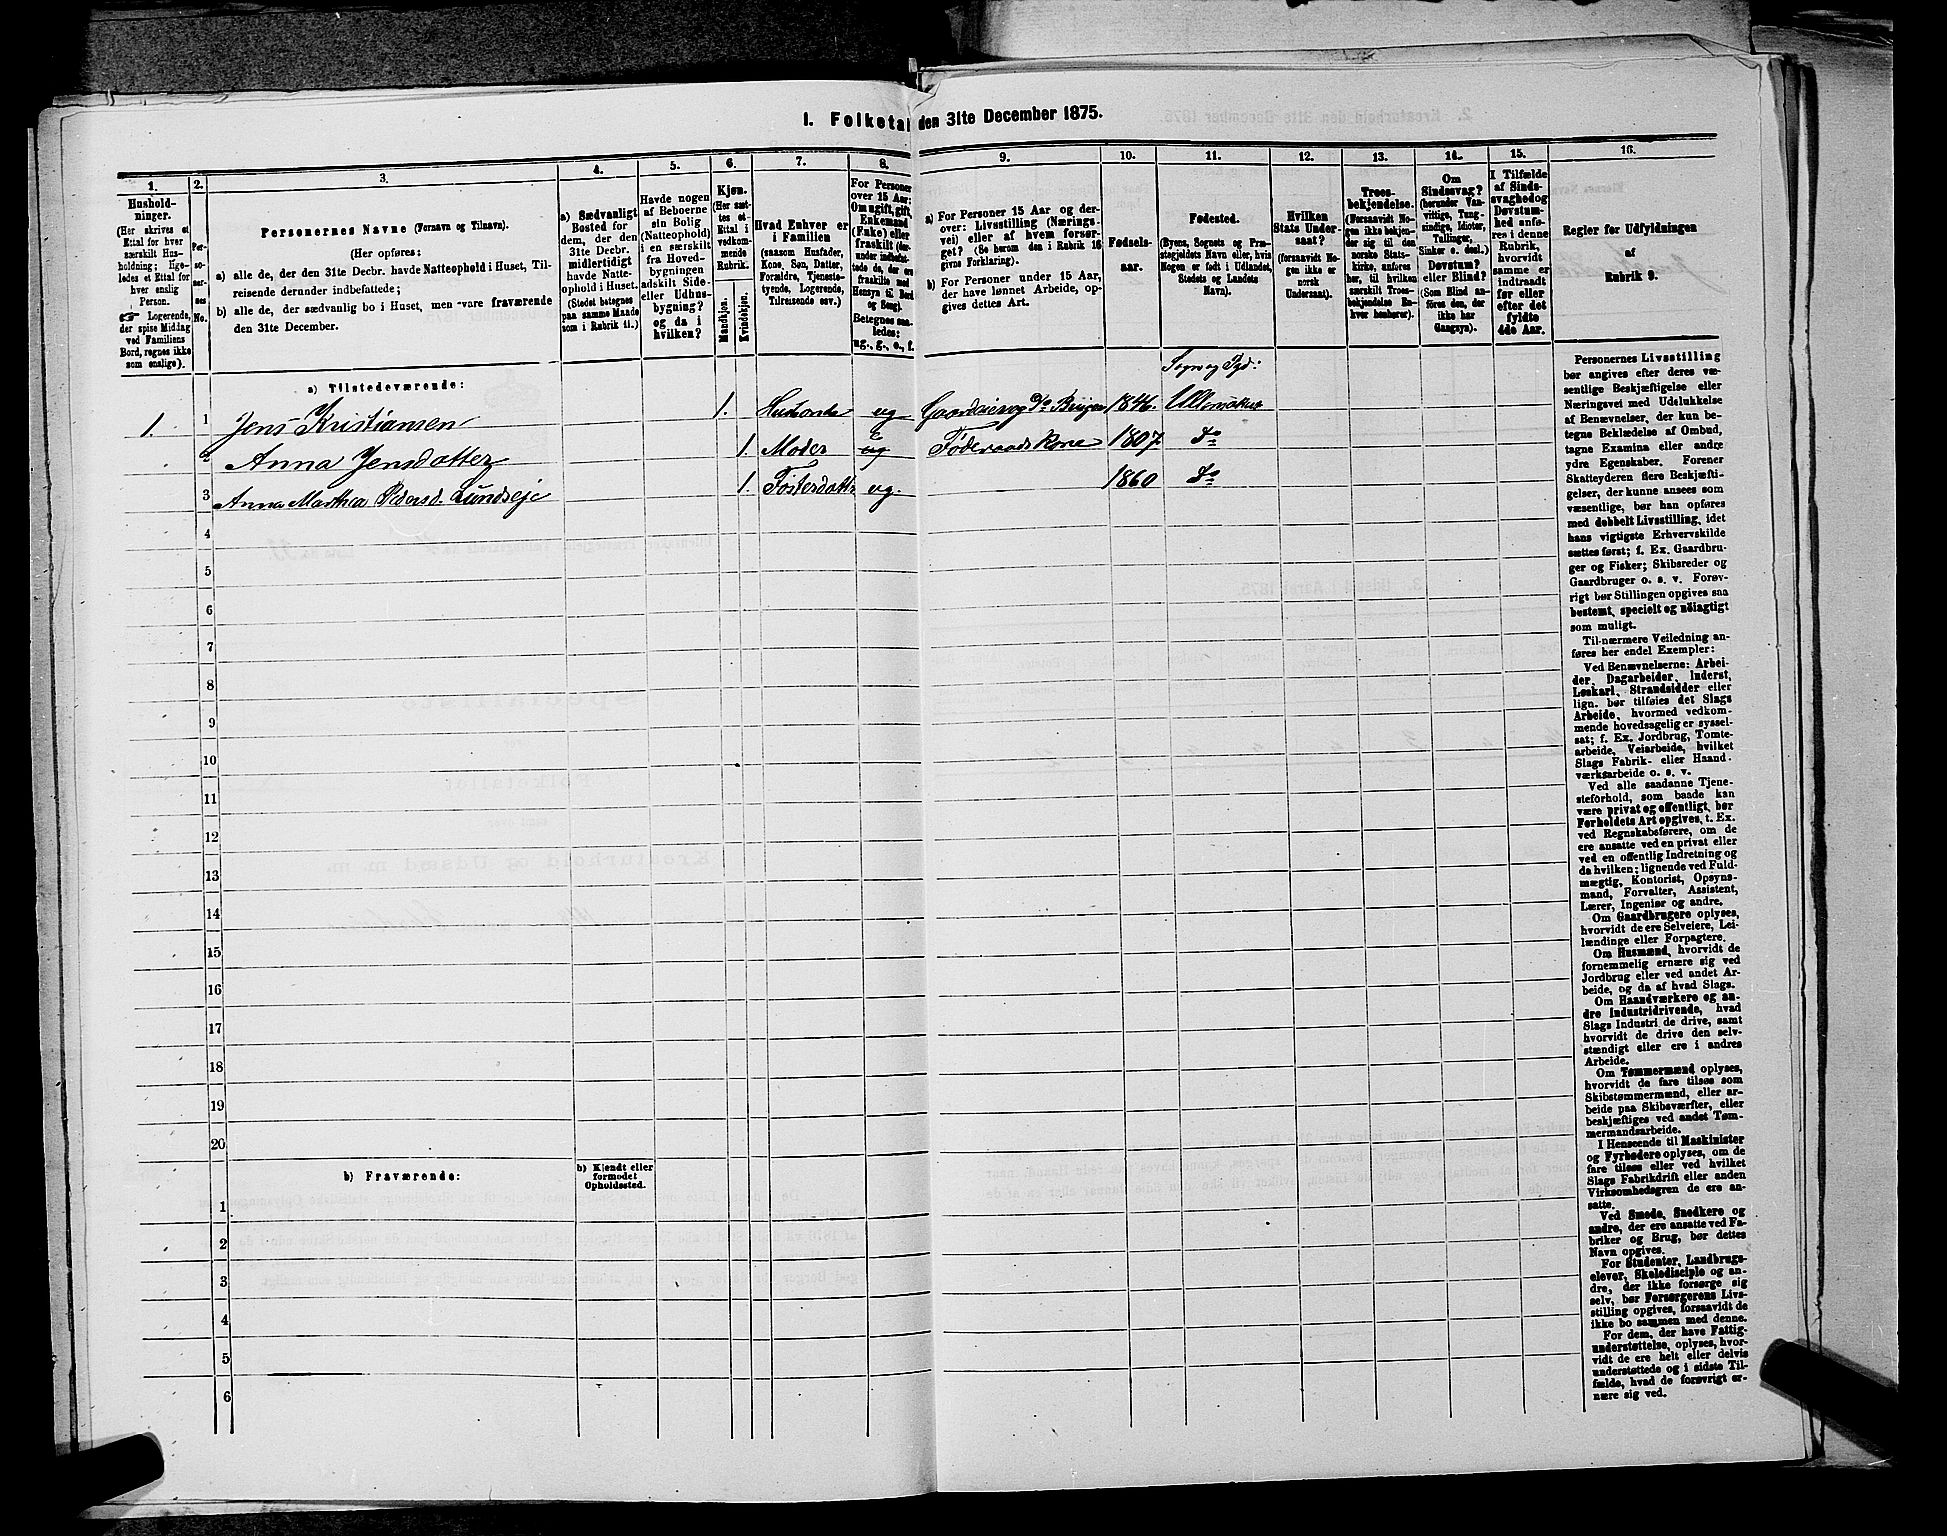 1. Folketal den 31te December 1875.
1.
Hushold-
ninger.
(Her skrives et
Ettal for hver
særskilt Hus-
holdning; lige-
ledes et Ettal for
hver enslig
Person.
☞ Logerende,
der spise Middag
ved Familiens
Bord, regnes ikke
som enslige).
2.
Per-
so-
ner-
nes
No.
3.
Personernes Navne (Fornavn og Tilnavn).
(Her opføres:
a) alle de, der den 31te Decbr. havde Natteophold i Huset, Til-
reisende derunder indbefattede;
b) alle de, der sædvanlig bo i Huset, men vare fraværende
den 31te December.
4.
a) Sædvanligt
Bosted for
dem, der den
31te Decbr.
midlertidigt
havde Natte-
ophold i Huset.
(Stedet betegnes
paa samme Maade
som i Rubrik 11.)
5.
Havde nogen
af Beboerne
sin Bolig
(Natteophold)
i en særskilt
fra Hoved-
bygningen
adskilt Side-
eller Udhus-
bygning?
og da i
hvilken?
6.
Kjøn.
(Her sæt-
tes et
Ettal i
vedkom-
mende
Rubrik.
Mandkjøn.
Kvindekjøn.
7.
Hvad Enhver er
i Familien
(saasom Husfader,
Kone, Søn, Datter,
Forældre, Tjeneste-
tyende, Logerende,
Tilreisende osv.)
8.
For Personer
over 15 Aar:
Om ugift, gift,
Enkemand
(Enke) eller
fraskilt (her-
under indbefat-
tede de, der ere
fraskilte med
Hensyn til Bord
og Seng).
Betegnes saa-
ledes:
ug., g., e., f.
9.
a) For Personer 15 Aar og der-
over: Livsstilling (Nærings-
vei) eller af hvem forsør-
get? (Se herom den i Rubrik 16
givne Forklaring).
b) For Personer under 15 Aar,
der have lønnet Arbeide, op-
gives dettes Art.
10.
Fødsels-
aar.
11.
Fødested.
(Byens, Sognets og Præ-
stegjeldets Navn eller, hvis
Nogen er født i Udlandet,
Stedets og Landets
Navn).
12.
Hvilken
Stats Under-
saat?
(forsaavidt No-
gen ikke er
norsk
Undersaat).
13.
Troes-
bekjendelse.
(Forsaavidt No-
gen ikke bekjen-
der sig til den
norske Stats-
kirke, anføres
her, til hvilken
særskilt Troes-
bekjendelse En-
hver henhører).
14.
Om
Sindssvag?
(herunder Van-
vittige, Tung-
sindige, Idioter,
Tullinger,
Sinker o. desl.)
Døvstum?
eller Blind?
(Som Blind an-
føres den, der
ikke har
Gangsyn).
15.
I Tilfælde
af Sinds-
svaghed og
Døvstum-
hed anfø-
res i denne
Rubrik,
hvorvidt
samme er
indtraadt
før eller
efter det
fyldte
4de Aar.
16.
Regler for Udfyldningen
af
Rubrik 9.
a) Tilstedeværende:
Sogn og Pgd:
1. 1 Jens Kristiansen 1. ug Gaardeier og do Bruger 1846. Ullensaker
2 Anna Jensdatter 1. Moder ug e Føderaadskone 1807 Do
3 Anna Marthea Pedersd. Lundseje 1. Fosterdatter ug. 1860 Do
4
5
6
7
8
9
10
11
12
13
14
15
16
17
18
19
20
b) Fraværende:
b) Kjendt eller
formodet
Opholdssted.
1
2
3
4
5
6
Personernes Livsstilling
bør angives efter deres væ-
sentlige Beskjæftigelse eller
Næringsvei med Udelukkelse
af Benævnelser, der kun be-
tegne Beklædelse af Ombud,
tagne Examina eller andre
ydre Egenskaber. Forener
Skatteyderen flere Beskjæfti-
gelser, der kunne ansees som
væsentlige, bør han opføres
med dobbelt Livsstilling, idet
hans vigtigste Erhvervskilde
sættes først; f. Ex. Gaardbru-
ger og Fisker; Skibsreder og
Gaardbruger o. s. v. Forøv-
rigt bør Stillingen opgives saa
bestemt, specielt og nøiagtigt
som muligt.
Til nærmere Veiledning an-
føres her endel Exempler:
Ved Benævnelserne: Arbei-
der, Dagarbeider, Inderst,
Løskarl, Strandsidder eller
lign. bør tilføies det Slags
Arbeide, hvormed vedkom-
mende hovedsagelig er syssel-
sat; f. Ex. Jordbrug, Tomte-
arbeide, Veiarbeide, hvilket
Slags Fabrik- eller Haand-
værksarbeide o. s. v.
Ved alle saadanne Tjene-
steforhold, som baade kan
være privat og offentligt, bør
Forholdets Art opgives, t. Ex.
ved Regnskabsførere, om de
ere ansatte ved en privat eller
ved en offentlig Indretning og
da hvilken; lignende ved Fuld-
mægtig, Kontorist, Opsyns-
mand, Forvalter, Assistent,
Lærer, Ingeniør og andre.
Om Gaardbrugere oplyses,
hvorvidt de ere Selveiere, Lei-
lændinge eller Forpagtere.
Om Husmænd, hvorvidt de
fornemmelig ernære sig ved
Jordbrug eller ved andet Ar-
beide, og da af hvad Slags.
Om Haandværkere og an-
dre Industridrivende, hvad
Slags Industri de drive, samt
hvorvidt de drive den selv-
stændigt eller ere i andres
Arbeide.
Om Tømmermænd oplyses,
hvorvidt de fare tilsøs som
Skibstømmermænd, eller ar-
beide paa Skibsværfter, eller
beskjæftiges ved andet Tøm-
mermandsarbeide.
I Henseende til Maskinister
og Fyrbødere oplyses, om de
fare tilsøs eller ved hvilket
Slags Fabrikdrift eller anden
Virksomhedsgren de ere an-
satte.
Ved Smede, Snedkere og
andre, der ere ansatte ved Fa-
briker og Brug, bør dettes
Navn opgives.
For Studenter, Landbrugs-
elever, Skoledisciple og an-
dre, der ikke forsørge sig
selv, bør Forsørgerens Livs-
stilling opgives, forsaavidt de
ikke bo sammen med denne.
For dem, der have Fattig-
understøttelse, oplyses, hvor-
vidt de ere helt eller delvis
understøttede og i sidste Til-
fælde, hvad de forøvrigt er-
nære sig ved.